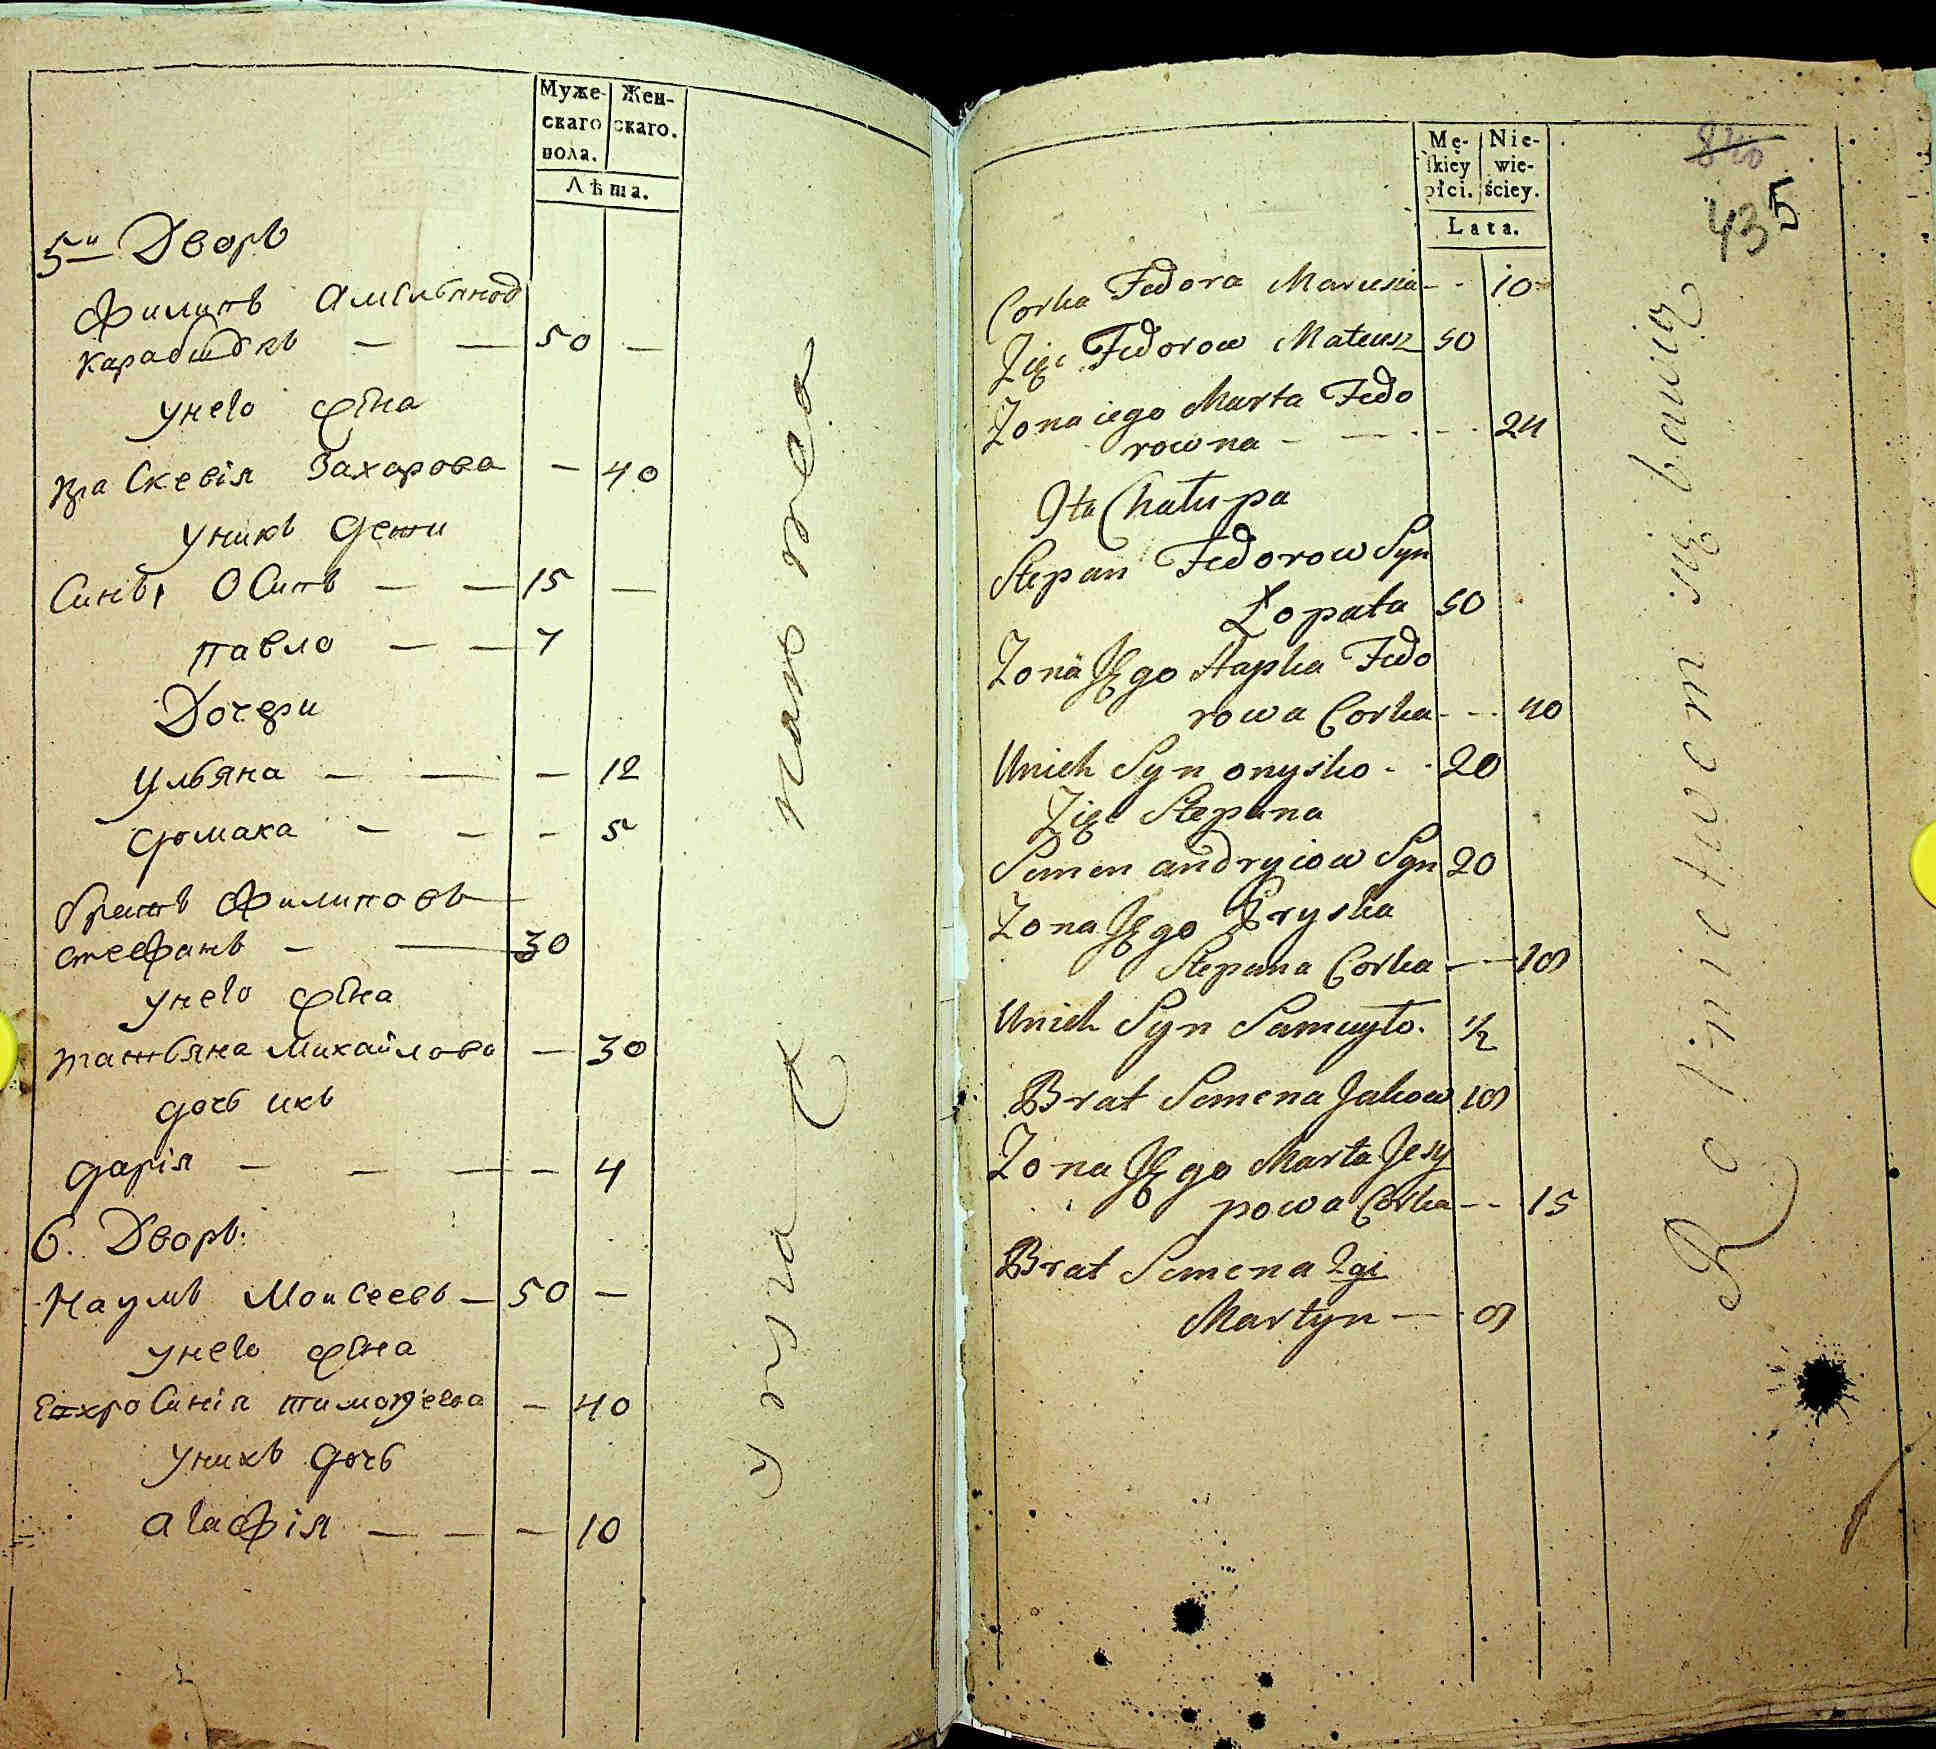 Муже-
скаго
пола.
Жен-
скаго.
Лѣта.
5й Дворъ
Филипъ Амельянов
Карабидкъ — — 50 —
унего жена
Праскевія Захарова — 40
унихъ дети
Синъ, Осипъ — — 15 —
павло — — 7
Дочери
Ульяна — — — 12
домаха — — — 5
братъ Филиповъ —
стефанъ — — 30
унего жена
татьяна Михайлова — 30
дочь ихъ
дарія — — — — 4
6. Дворъ.
Наумъ Моисеевъ — 50 —
унего жена
Ефхросинія тимофеева — 40
унихъ дочь
агафія — — — 10
Mę-
skiey
płci.
Nie-
wie-
ściey.
Lata.
840
435
Corka Fedora Marusia - - 10
Zięc Fedorow Mateusz 50
Zona iego Marta Fedo
rowna - — - - 24
9ta Chałupa
Stepan Fedorow Syn
Łopata 50
Zona JEgo Hapka Fedo
rowa Corka - - - 40
Unich Syn onysko - - 20
Zięc Stepana
Semen andryiow Syn 20
Zona JEgo Pryska
Stepana Corka - — 18
Unich Syn Samuyło. 1/2
Brat Semena Jakow 18
Zona JEgo Marta Jesy
powa Corka - - 15
Brat Semena 2gi
Martyn — - 8
Rolnictwem się bawią